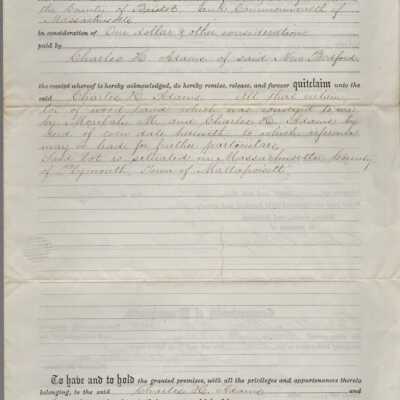 the County of Bristol and Commonwealth of
Massachusetts
in consideration of One dollar & other considerations
paid by
Charles H. Adams of said New Bedford
the receipt whereof is hereby acknowledged, do hereby remise, release, and forever quitclaim unto the
said Charles H. Adams, All that
lot of wood land which was conveyed to me
by M. and Charles H. Adams by
deed of even date herewith to which reference
may be made for further particulars,
Said lot is situated in Massachusetts County
of Plymouth, Town of Mattapoisett.
To have and to hold the granted premises, with all the privileges and appurtenances thereto
belonging, to the said Charles H. Adams and